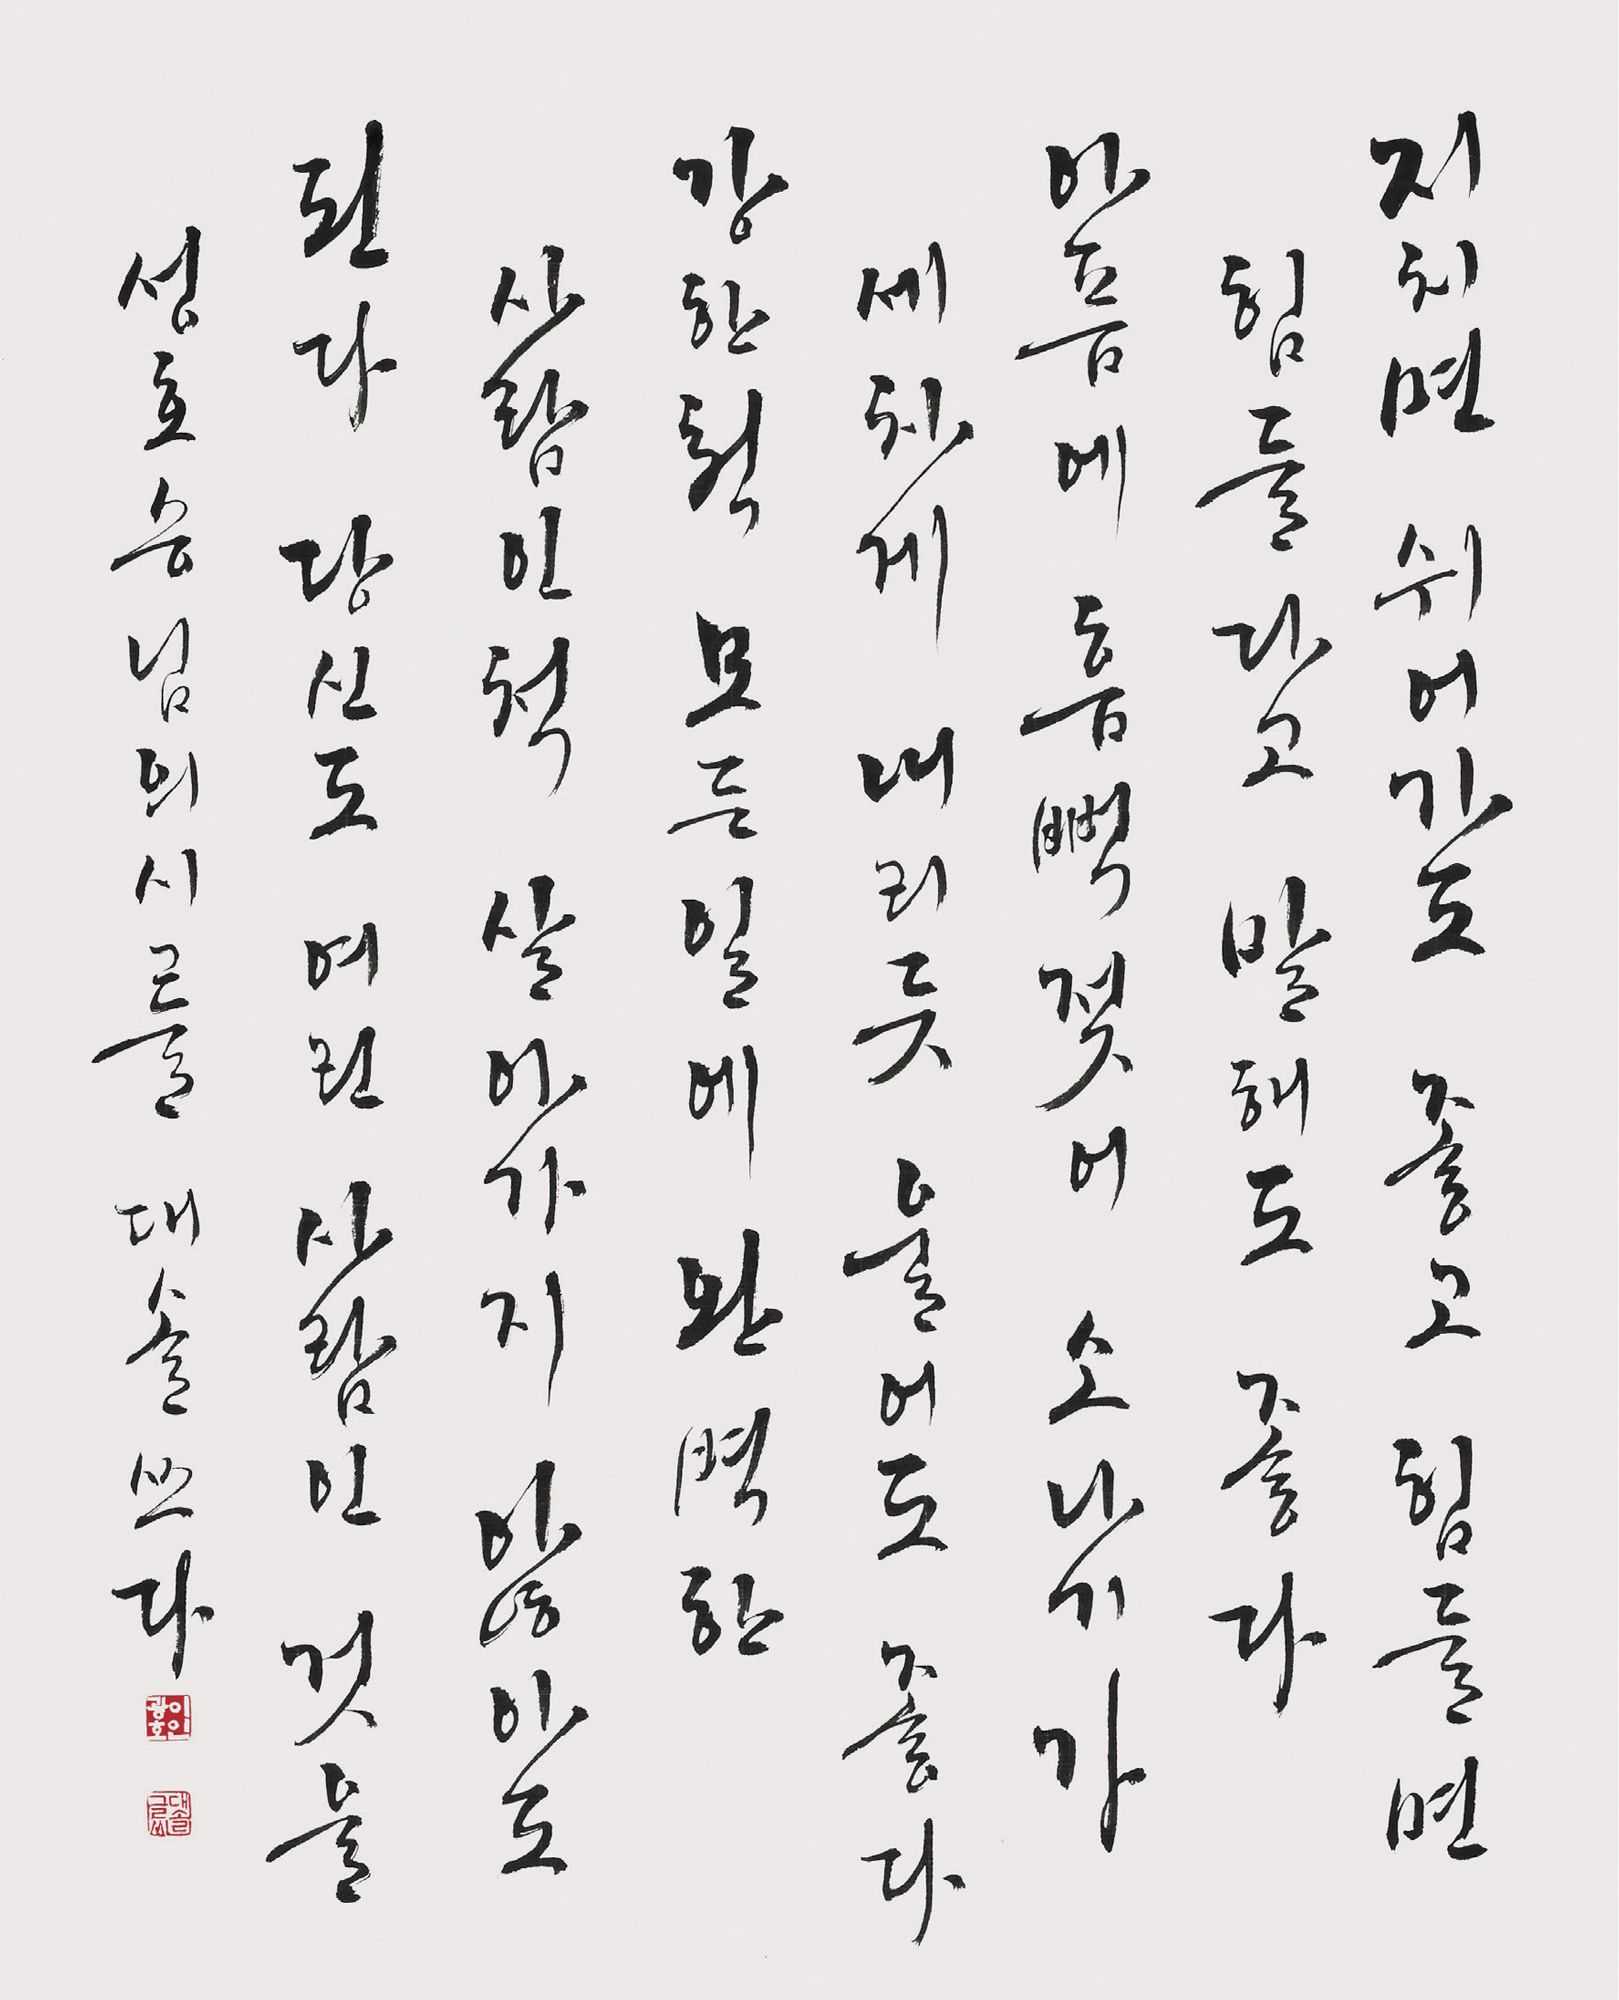 지치면 쉬어가도 좋고 힘들면
힘들다고 말해도 좋다
아픔에 흠뻑젖어 소나기가
세차게 내리듯 울어도 좋다
강한척 모든일에 완벽한
사람인척 살아가지 않아도
된다 당신도 여린 사람인 것을
성호승님의시를 대솔쓰다
이인광호
대솔